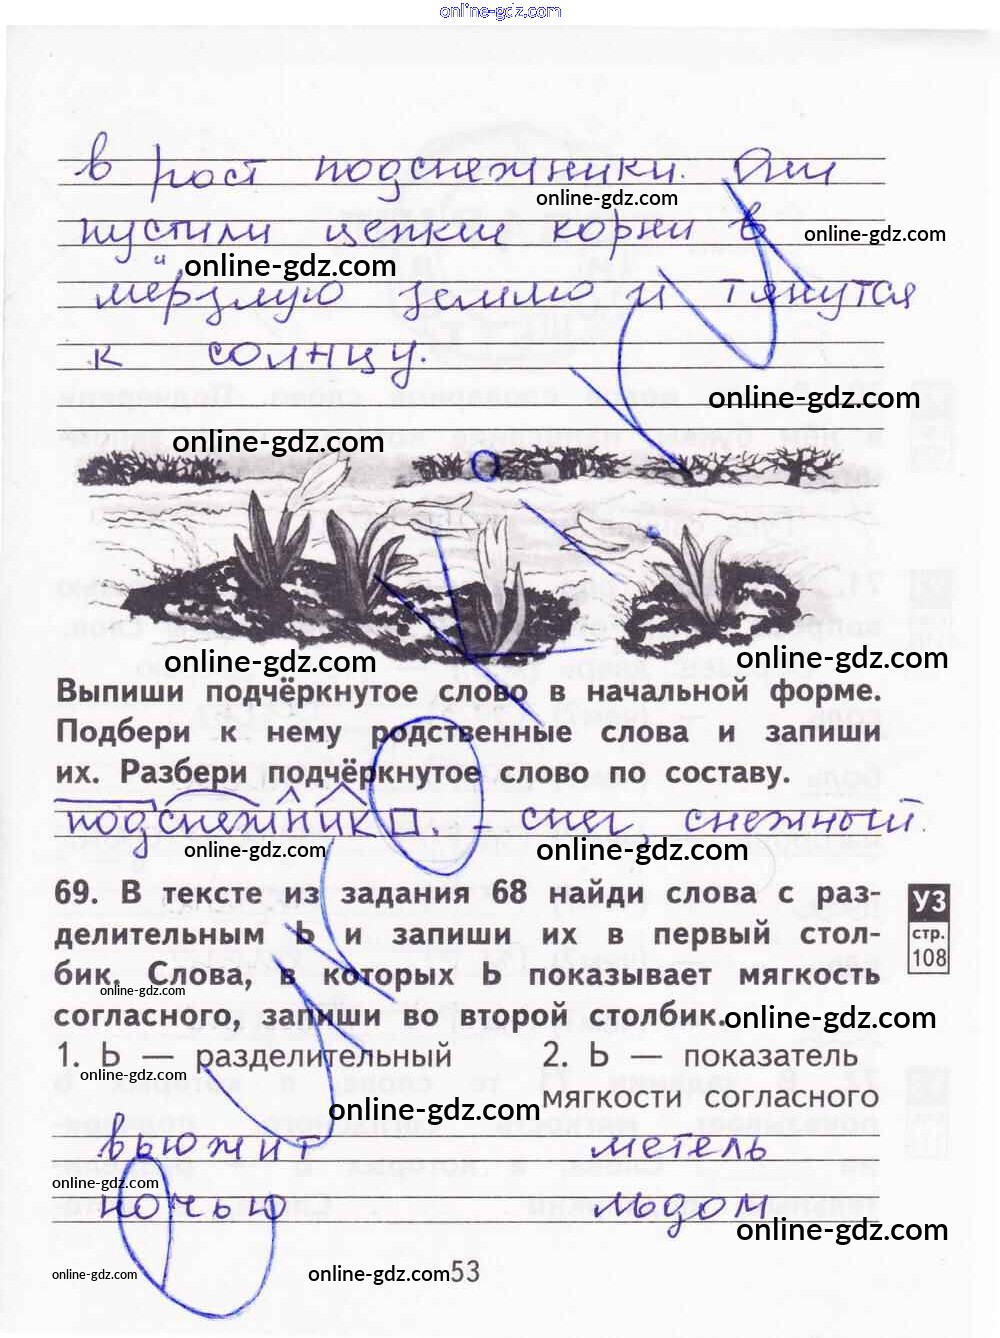 online-gdz.com
в рост подснежники. Они
online-gdz.com
пустили цепкие корни в
online-gdz.com
online-gdz.com
мёрзлую землю и тянутся
к солнцу.
online-gdz.com
online-gdz.com
online-gdz.com
online-gdz.com
Выпиши подчёркнутое слово в начальной форме.
Подбери к нему родственные слова и запиши
их. Разбери подчёркнутое слово по составу.
подснежник. – снег, снежный.
online-gdz.com
online-gdz.com
69. В тексте из задания 68 найди слова с раз-
делительным Ь и запиши их в первый стол-
бик. Слова, в которых Ь показывает мягкость
согласного, запиши во второй столбик.
УЗ
стр.
108
online-gdz.com
online-gdz.com
1. Ь — разделительный
2. Ь — показатель
мягкости согласного
online-gdz.com
online-gdz.com
вьюжит
метель
online-gdz.com
ночью
льдом
online-gdz.com
online-gdz.com
online-gdz.com
53